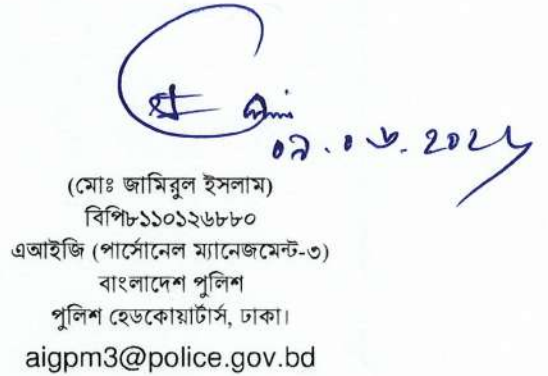 ০৯.০৬.২০২৫
(মোঃ জামিরুল ইসলাম)
বিপি৮১১০১২৬৮৮০
এআইজি (পার্সোনেল ম্যানেজমেন্ট-৩)
বাংলাদেশ পুলিশ
পুলিশ হেডকোয়ার্টার্স, ঢাকা।
aigpm3@police.gov.bd